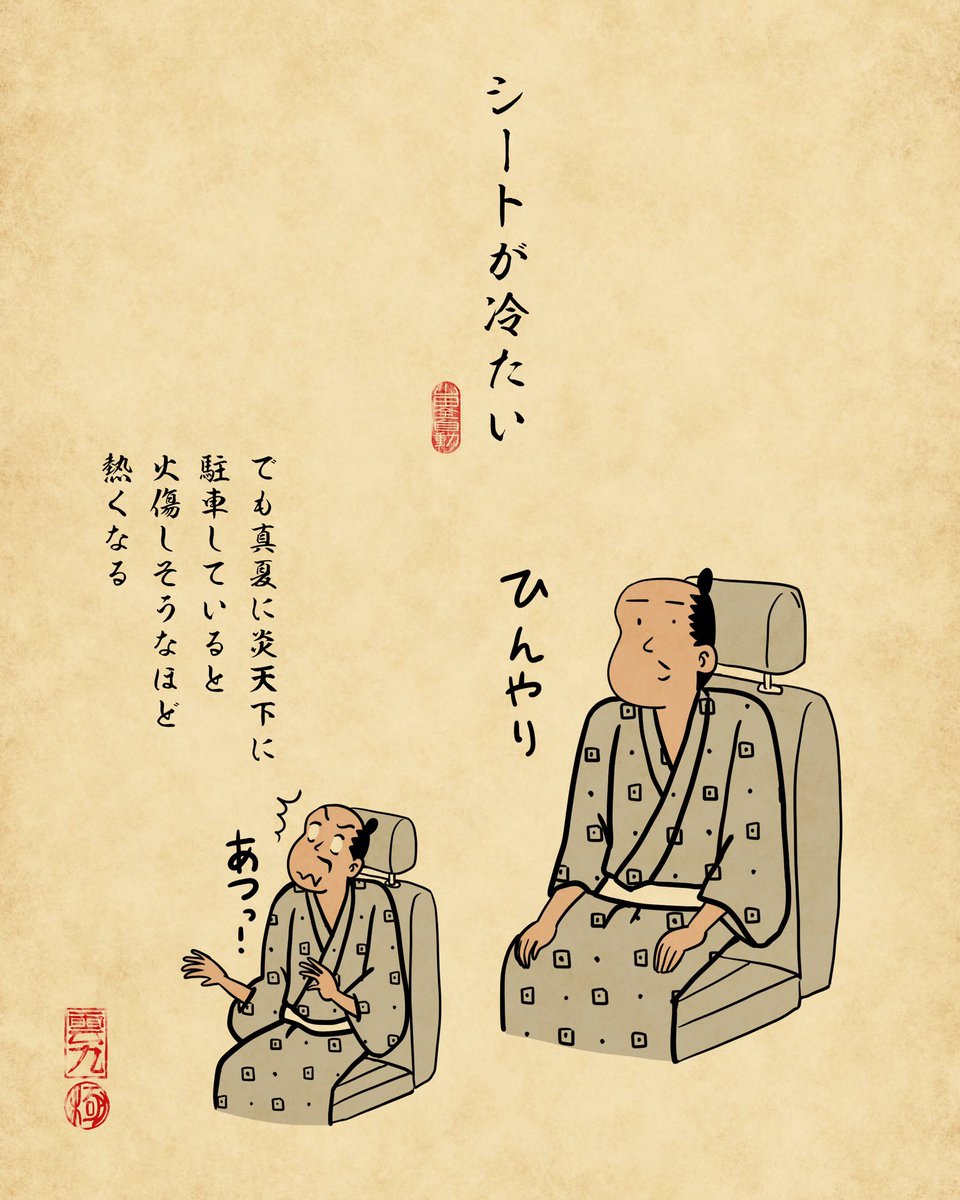 シートが冷たい
ひんやり
でも真夏に炎天下に
駐車していると
火傷しそうなほど
熱くなる
あつっ!
雲九
極